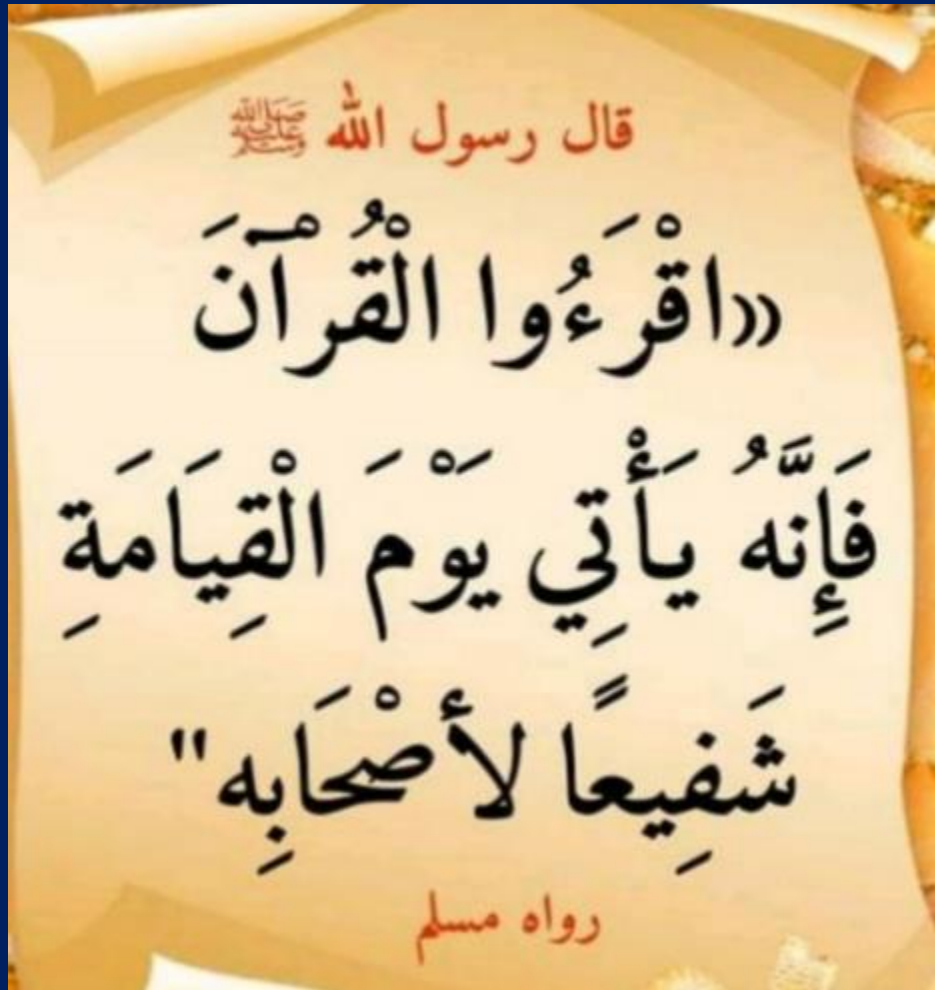 قال رسول الله ﷺ
«اقْرَءُوا الْقُرْآنَ
فَإِنَّهُ يَأْتِي يَوْمَ الْقِيَامَةِ
شَفِيعًا لأصْحَابِهِ"
رواه مسلم